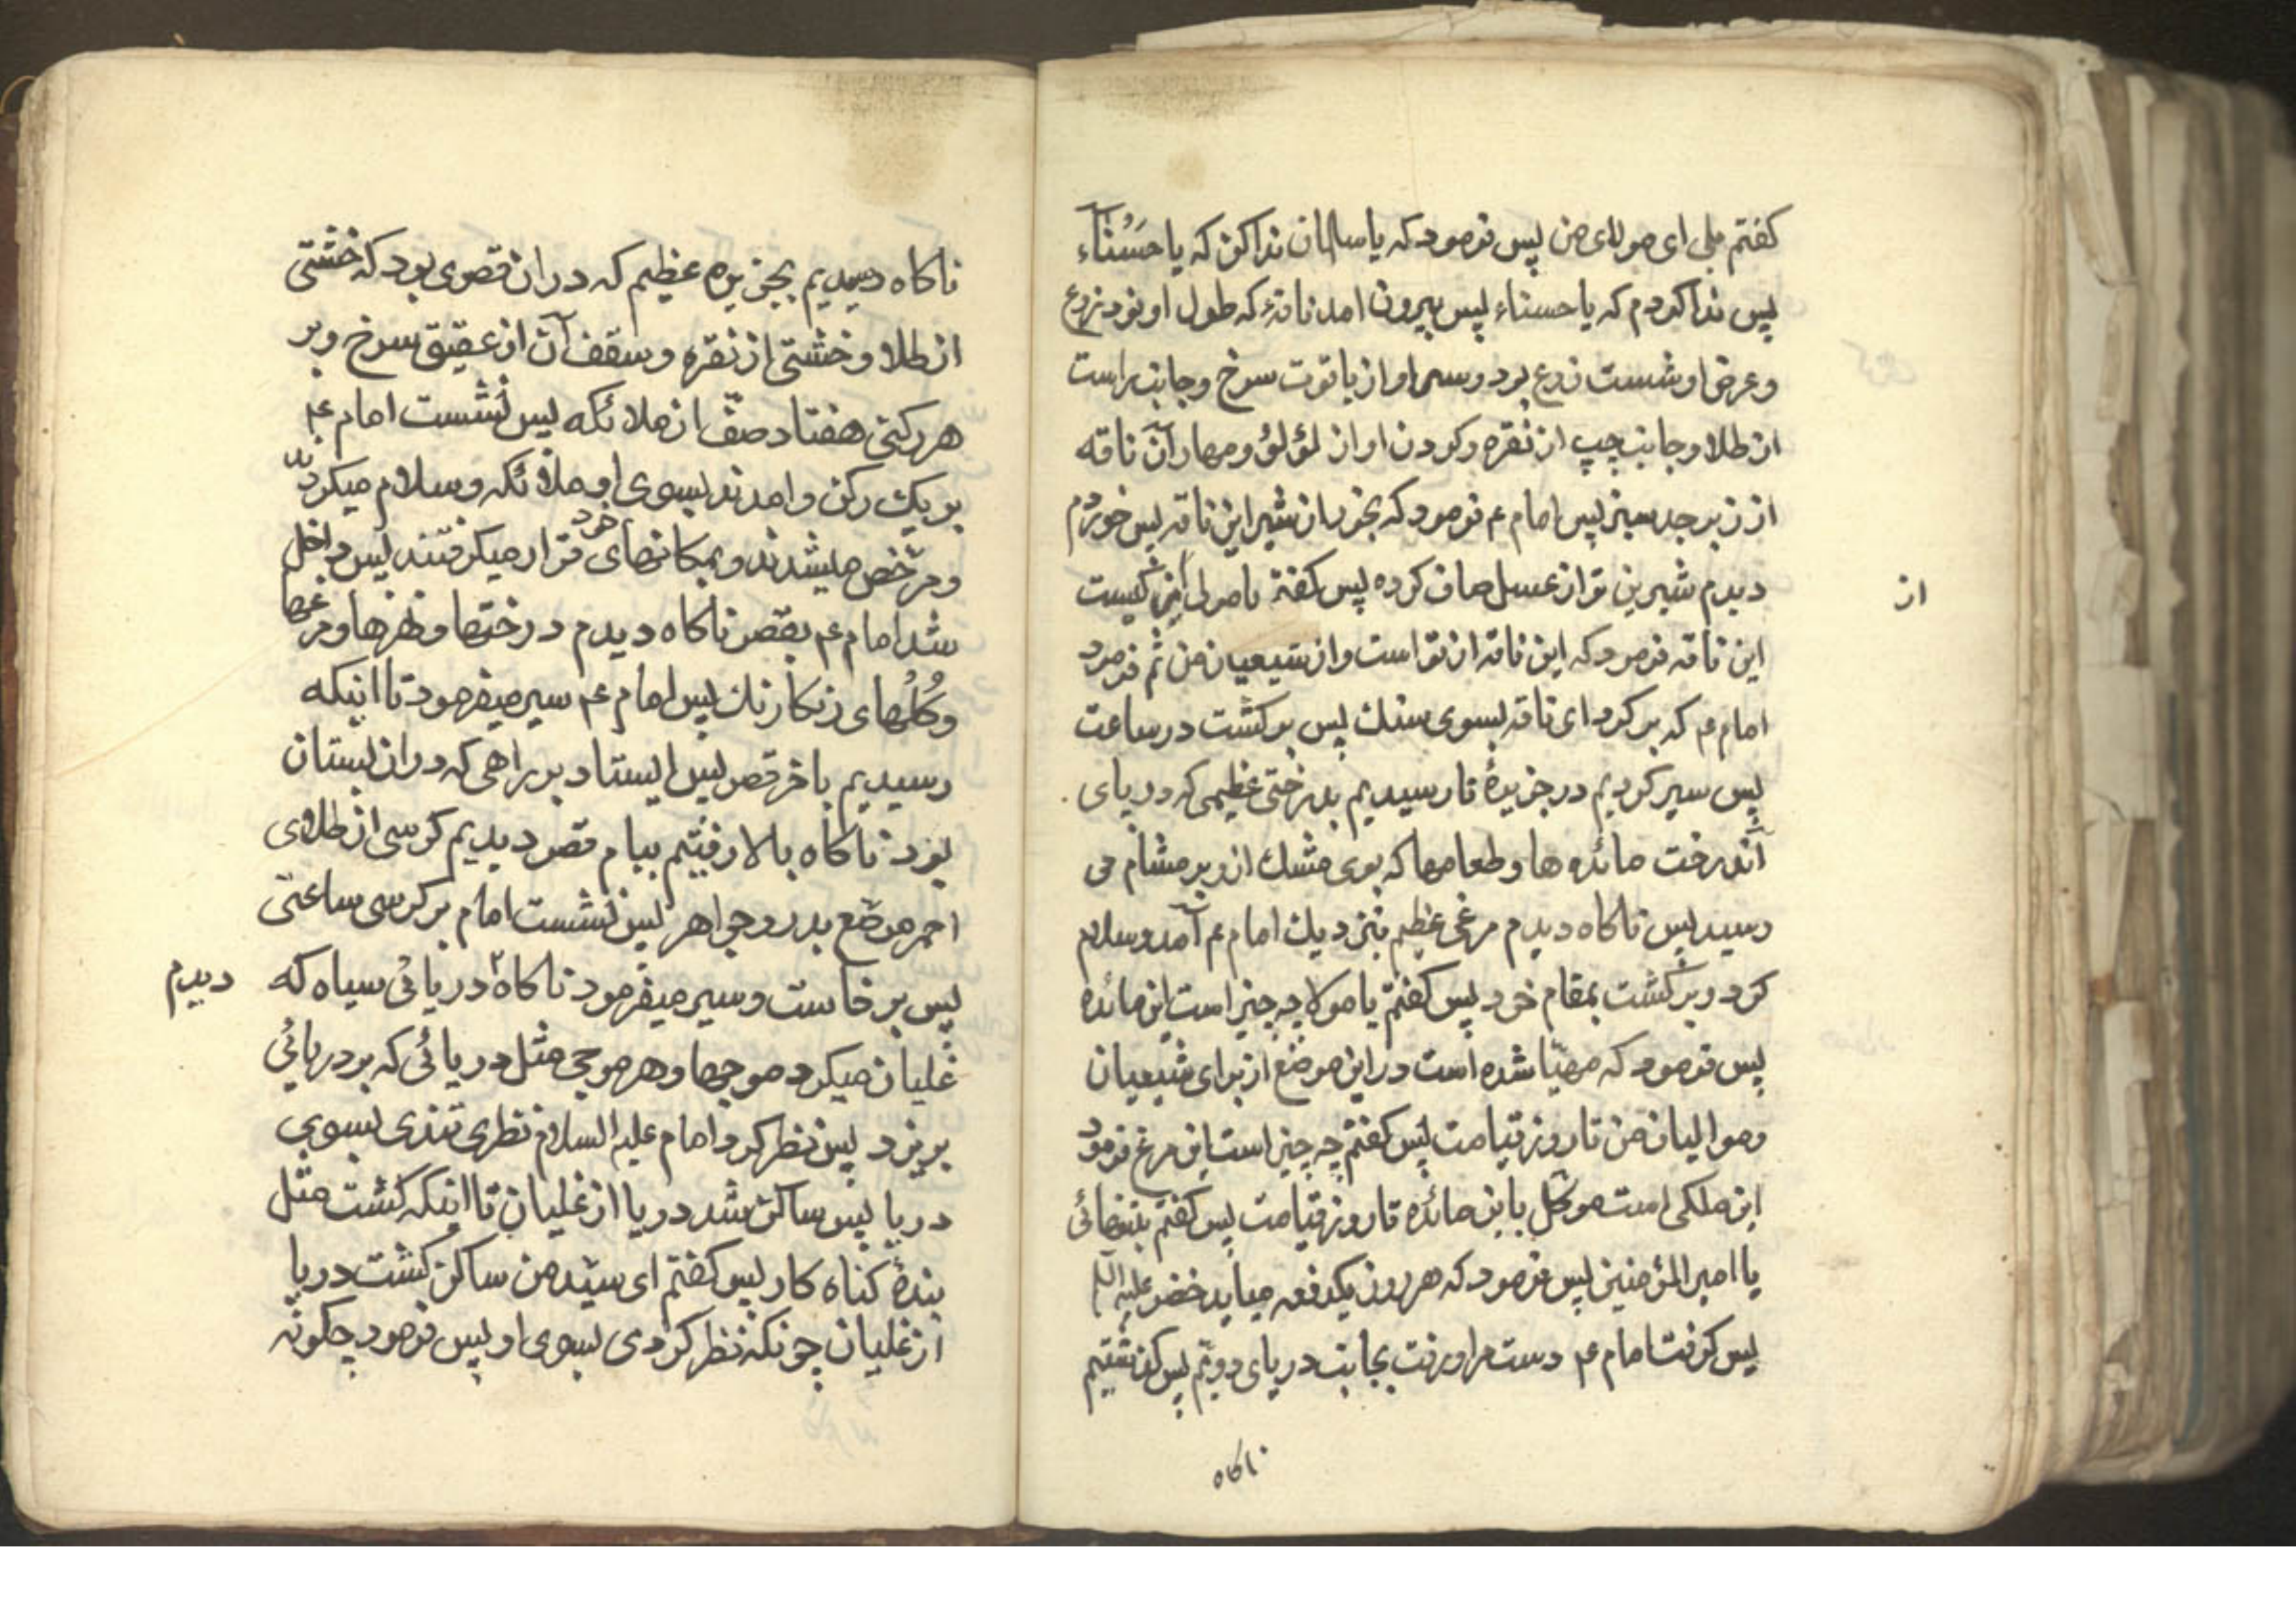 کفتم بلی ای مولای من پس فرمود که یا سلمان ندا کن که یا حَسْنَآء
پس ندا کردم که یا حسناء پس بیرون امد ناقۀ که طول او نود زرع
و عرض او شست زرع بود و سر او از یاقوت سرخ و جانب راست
از طلا و جانب چپ از نقره و کردن او از لؤلؤ و مهار آن ناقه
از زبرجد سبز پس امام ع فرمود که بخور از شیر این ناقه پس خوردم
دیدم شیرین تر از عسل صاف کرده پس کفتم یا مولی از کیست
از
این ناقه فرمود که این ناقه از تو است و از شیعیان من ثم فرمود
امام ع که برکرد ای ناقه بسوی سنك پس برکشت در ساعت
پس سیر کردیم در جزیرۀ تا رسیدیم بدرختی عظیمی که در پای
آندرخت مائده ها و طعامها که بوی مشك از و بر مشام می
رسید پس ناکاه دیدم مرغی عظیم بنزدیك امام ع آمد و سلام
کرد و برکشت بمقام خود پس کفتم یا مولا چه چیز است این مائده
پس فرمود که مهیّا شده است در این موضع از برای شیعیان
و موالیان من تا روز قیامت پس کفتم چه چیز است این مرغ فرمود
این ملکی است موکّل باین مائده تا روز قیامت پس کفتم بتنهائی
یا امیر المؤمنین پس فرمود که هر روز یکدفعه میاید خضر علیه السلام
پس کرفت امام ع دست مرا و رفت بجانب دریای دویّم پس کذشتیم
ناکاه
ناکاه رسیدیم بجزیره عظیم که در ان قصری بود که خشتی
از طلا و خشتی از نقره و سقف آن از عقیق سرخ و بر
هر رکنی هفتاد صفّ از ملائکه پس نشست امام ع
بر یك رکن و امدند بسوی او ملائکه و سلام میکردند
و مرخّص میشدند و بمکانهای خود قرار میکرفتند پس داخل
شد امام ع بقصر ناکاه دیدم درختها و نهرها و مرغها
و کُلُهای رنکارنك پس امام ع سیر میفرمود تا اینکه
رسیدیم باخر قصر پس ایستاد بر براهی که در ان بستان
بود ناکاه بالا رفتیم ببام قصر دیدیم کرسی از طلای
احمر مرصّع بدر و جواهر پس نشست امام بر کرسی ساعتی
پس برخاست و سیر میفرمود ناکاه ۲ دریائی سیاه که
دیدم
غلیان میکرد موجها و هر موجی مثل دریائی که بر دریائی
بریزد پس نظر کرد امام علیه السلام نظری تندی بسوی
دریا پس ساکن شد دریا از غلیان تا اینکه کشت مثل
بندۀ کناه کار پس کفتم ای سیّد من ساکن کشت دریا
از غلیان چونکه نظر کردی بسوی او پس فرمود چکونه